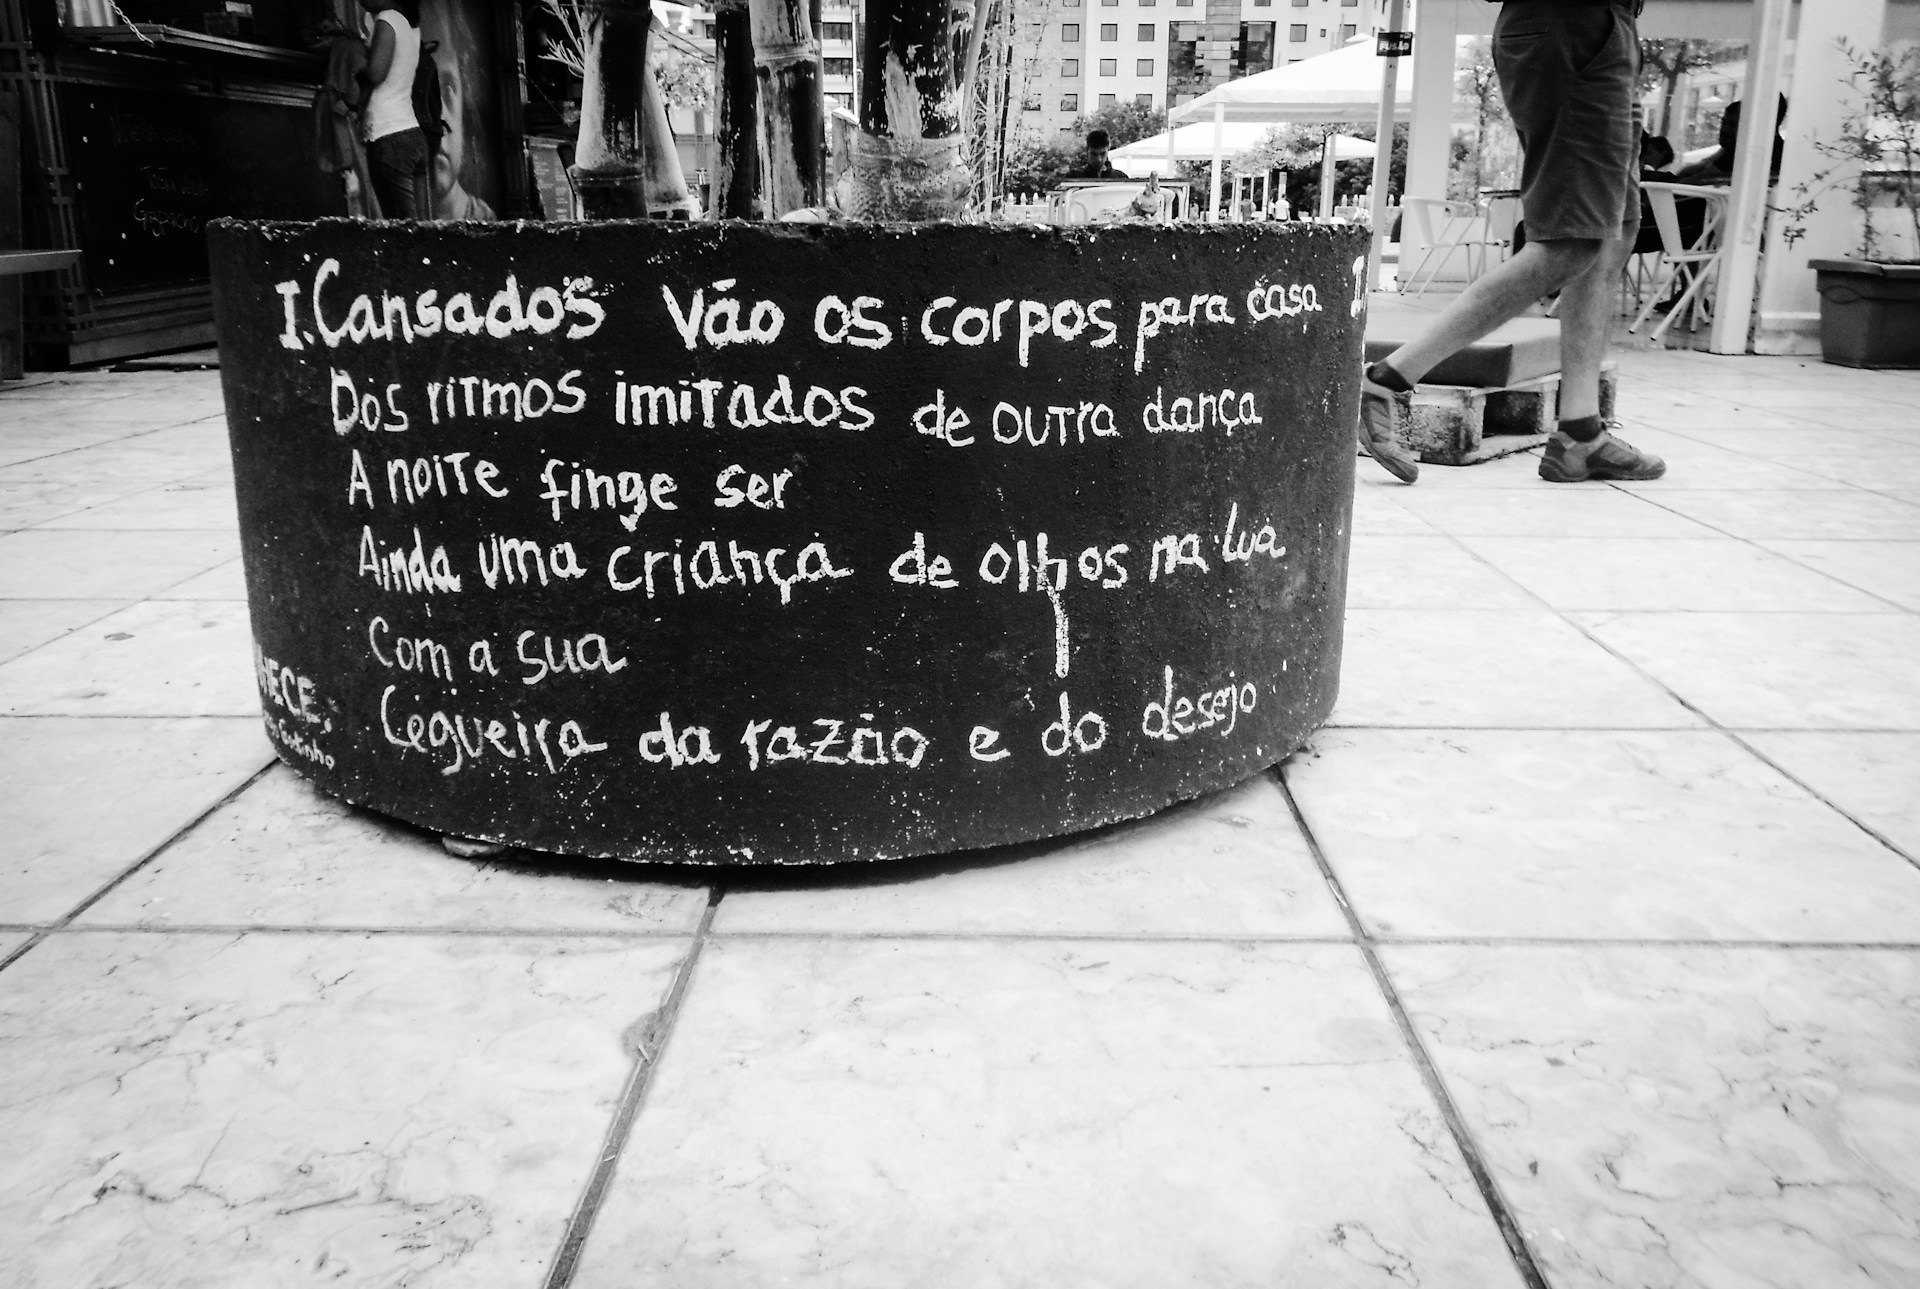 I. Cansados vão os corpos para casa
Dos ritmos imitados de outra dança
A noite finge ser
Ainda uma criança de olhos na lua
Com a sua
Cegueira da razão e do desejo
HECE,
FUSÃO